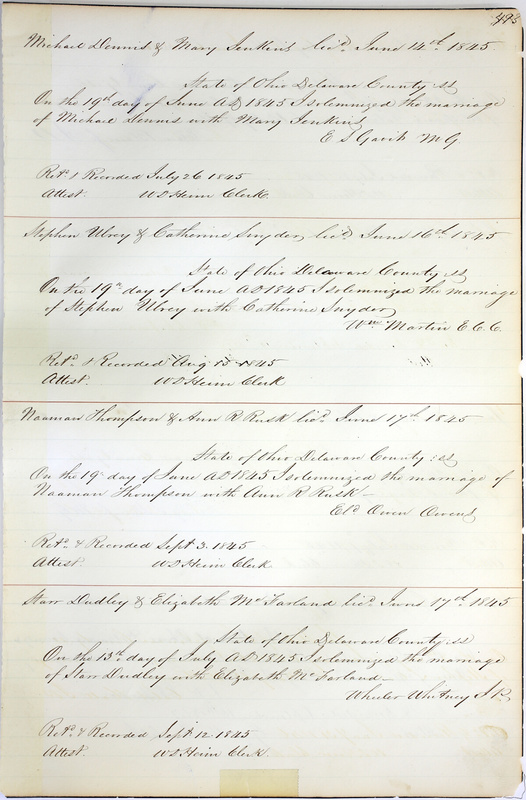 493
Michael Dennis & Mary Jenkins lic'd. June 14th. 1845.
State of Ohio Delaware County ss
On the 19th day of June AD 1845 I solemnized the marriage
of Michael Dennis with Mary Jenkins
E S Gavit MG
Ret'd. & Recorded July 26 1845
Attest. W D Heim Clerk.
Stephen Ulrey & Catherine Snyder lic'd. June 16th. 1845
State of Ohio Delaware County ss
On the 19th day of June AD 1845 I solemnized the marriage
of Stephen Ulrey with Catherine Snyder
Wm Martin E.C.C.
Ret'd. & Recorded Aug 15 1845
Attest. W D Heim Clerk
Naaman Thompson & Ann R Rusk lic'd. June 17th. 1845
State of Ohio Delaware County : ss
On the 19th day of June AD 1845 I solemnized the marriage of
Naaman Thompson with Ann R Rusk —
Eld Owen Owens
Ret'd. & Recorded Sept 3. 1845
Attest. W D Heim Clerk
Starr Dudley & Elizabeth Mc Farland lic'd. June 17th. 1845
State of Ohio Delaware County : ss
On the 13th day of July AD 1845 I solemnized the marriage
of Starr Dudley with Elizabeth Mc Farland —
Wheeler Whitney J.P.
Ret'd. & Recorded Sept 12 1845
Attest. W D Heim Clerk.